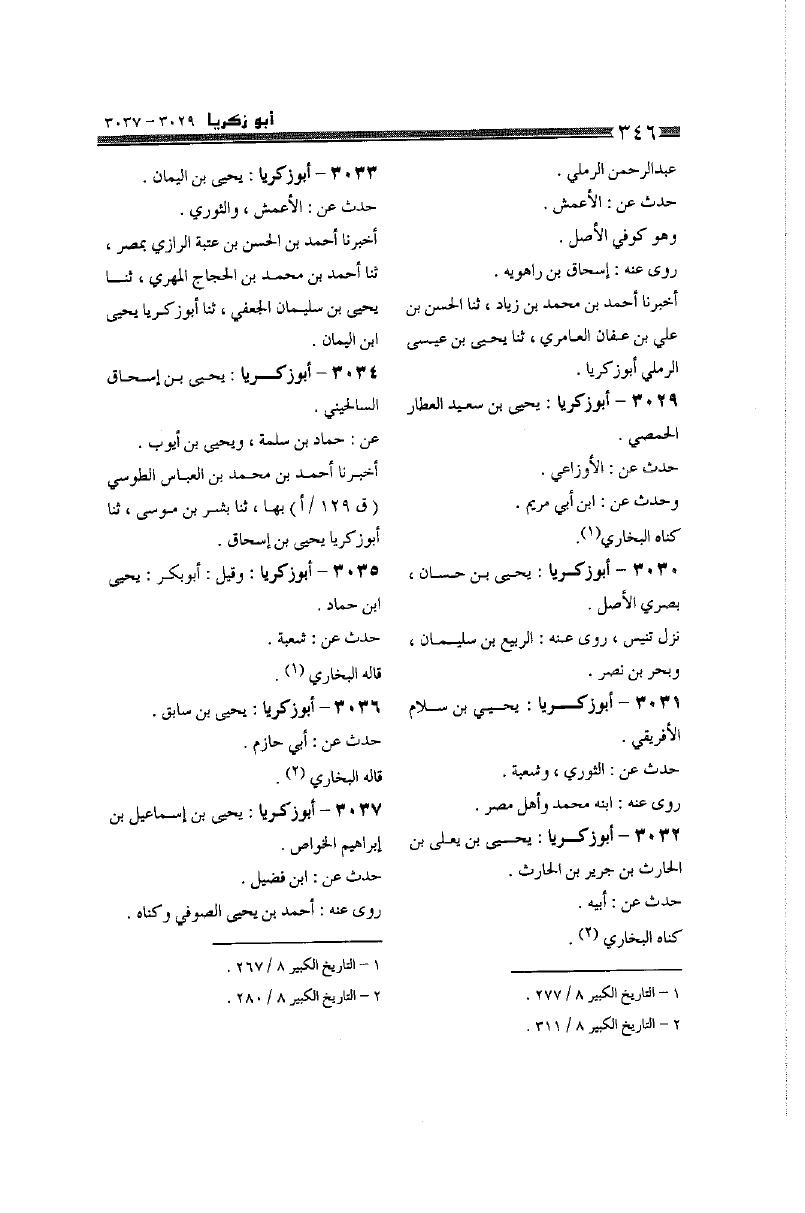 ٣٤٦
أبو زكريا ٣٠٢٩ – ٣٠٣٧
عبدالرحمن الرملي .
حدث عن : الأعمش .
وهو كوفي الأصل .
روى عنه : إسحاق بن راهويه .
أخبرنا أحمد بن محمد بن زياد ، ثنا الحسن بن
علي بن عفان العامري ، ثنا يحيى بن عيسى
الرملي أبوزكريا .
٣٠٢٩ – أبوزكريا : يحيى بن سعيد العطار
الحمصي .
حدث عن : الأوزاعي .
وحدث عن : ابن أبي مريم .
كناه البخاري(١).
٣٠٣٠ – أبوزكريا : يحيى بن حسان ،
بصري الأصل .
نزل تنيس ، روى عنه : الربيع بن سليمان ،
وبحر بن نصر .
٣٠٣١ – أبوزكريا : يحيي بن سلام
الأفريقي .
حدث عن : الثوري ، وشعبة .
روى عنه : ابنه محمد وأهل مصر .
٣٠٣٢ – أبوزكريا : يحيى بن يعلى بن
الحارث بن جرير بن الحارث .
حدث عن : أبيه .
كناه البخاري (٢) .
١ – التاريخ الكبير ٨ / ٢٧٧ .
٢ – التاريخ الكبير ٨ / ٣١١ .
٣٠٣٣ – أبوزكريا : يحيى بن اليمان .
حدث عن : الأعمش ، والثوري .
أخبرنا أحمد بن الحسن بن عتبة الرازي بمصر ،
ثنا أحمد بن محمد بن الحجاج المهري ، ثنا
يحيى بن سليمان الجعفي ، ثنا أبوزكريا يحيى
ابن اليمان .
٣٠٣٤ – أبوزكريا : يحيى بن إسحاق
السالحيني .
عن : حماد بن سلمة ، ويحيى بن أيوب .
أخبرنا أحمد بن محمد بن العباس الطوسي
( ق ١٢٩ / أ ) بها ، ثنا بشر بن موسى ، ثنا
أبوزكريا يحيى بن إسحاق .
٣٠٣٥ – أبوزكريا : وقيل : أبوبكر : يحيى
ابن حماد .
حدث عن : شعبة .
قاله البخاري (١) .
٣٠٣٦ – أبوزكريا : يحيى بن سابق .
حدث عن : أبي حازم .
قاله البخاري (٢) .
٣٠٣٧ – أبوزكريا : يحيى بن إسماعيل بن
إبراهيم الخواص .
حدث عن : ابن فضيل .
روى عنه : أحمد بن يحيى الصوفي وكناه .
١ – التاريخ الكبير ٨ / ٢٦٧ .
٢ – التاريخ الكبير ٨ / ٢٨٠ .